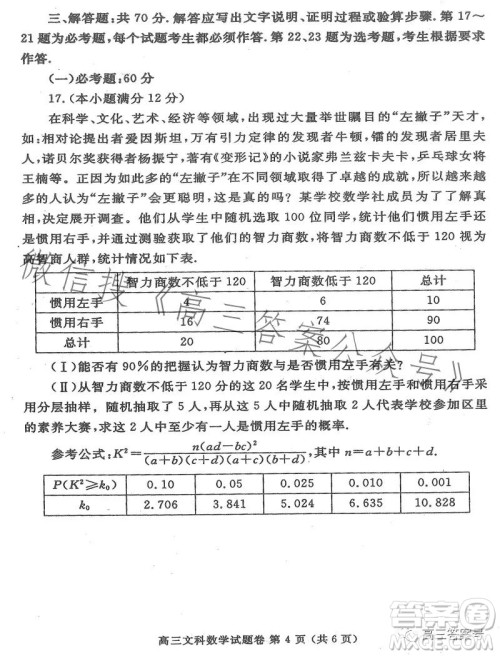 三、解答题:共 70 分. 解答应写出文字说明、证明过程或验算步骤. 第 17～
21 题为必考题,每个试题考生都必须作答. 第 22、23 题为选考题,考生根据要求
作答.
(一)必考题:60 分
17. (本小题满分 12 分)
在科学、文化、艺术、经济等领域,出现过大量举世瞩目的“左撇子”天才,
如:相对论提出者爱因斯坦,万有引力定律的发现者牛顿,镭的发现者居里夫
人,诺贝尔奖获得者杨振宁,著有《变形记》的小说家弗兰兹卡夫卡,乒乓球女将
王楠等. 正因为如此多的“左撇子”在不同领域取得了越来越多的成就,所以有
人认为“左撇子”会更聪明,这是真的吗? 某学校数学社成员为了了解真
相,决定展开调查. 他们从学生中随机选取 100 位同学,统计他们惯用左手还
是惯用右手,并通过测验获取了他们的智力商数,将智力商数不低于 120 视为
高智商人群,统计情况如下表.
智力商数不低于 120 智力商数低于 120 总计
惯用左手 4 6 10
惯用右手 16 74 90
总计 20 80 100
(Ⅰ)能否有 90%的把握认为智力商数与是否惯用左手有关?
(Ⅱ)从智力商数不低于 120 分的这 20 名学生中,按惯用左手和惯用右手采
用分层抽样,随机抽取了 5 人,再从这 5 人中随机抽取 2 人代表学校参加区里
的素养大赛,求这 2 人中至少有一人是惯用左手的概率.
参考公式:K²=n(ad-bc)²/((a+b)(c+d)(a+c)(b+d)),其中 n=a+b+c+d.
P(K²≥k₀) 0.10 0.05 0.025 0.010 0.001
k₀ 2.706 3.841 5.024 6.635 10.828
高三文科数学试题卷 第 4 页 (共 6 页)
微信搜《高三答案公众号》
高三答案号